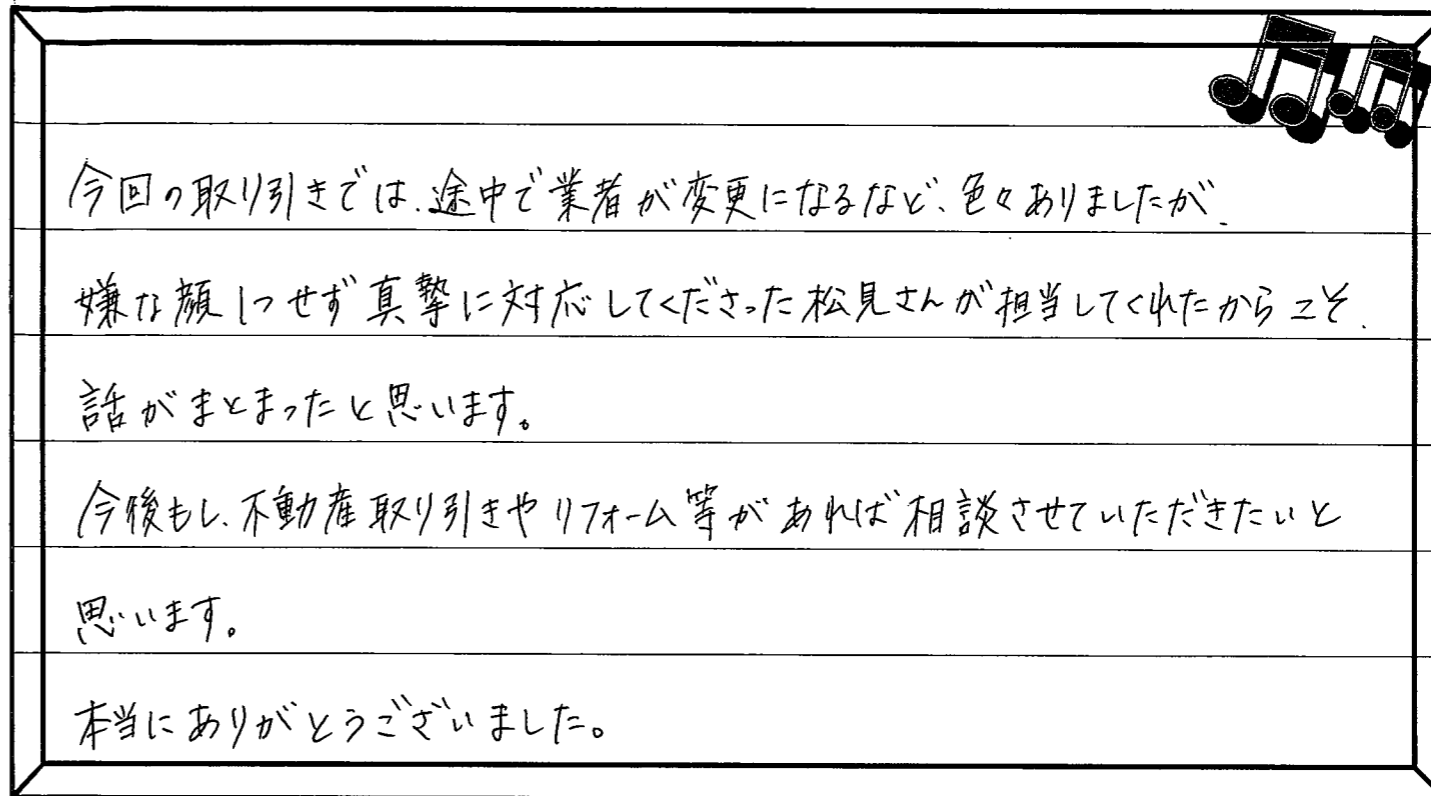 今回の取り引きでは、途中で業者が変更になるなど、色々ありましたが、
嫌な顔1つせず真摯に対応してくださった松見さんが担当してくれたからこそ、
話がまとまったと思います。
今後もし、不動産取り引きやリフォーム等があれば相談させていただきたいと
思います。
本当にありがとうございました。